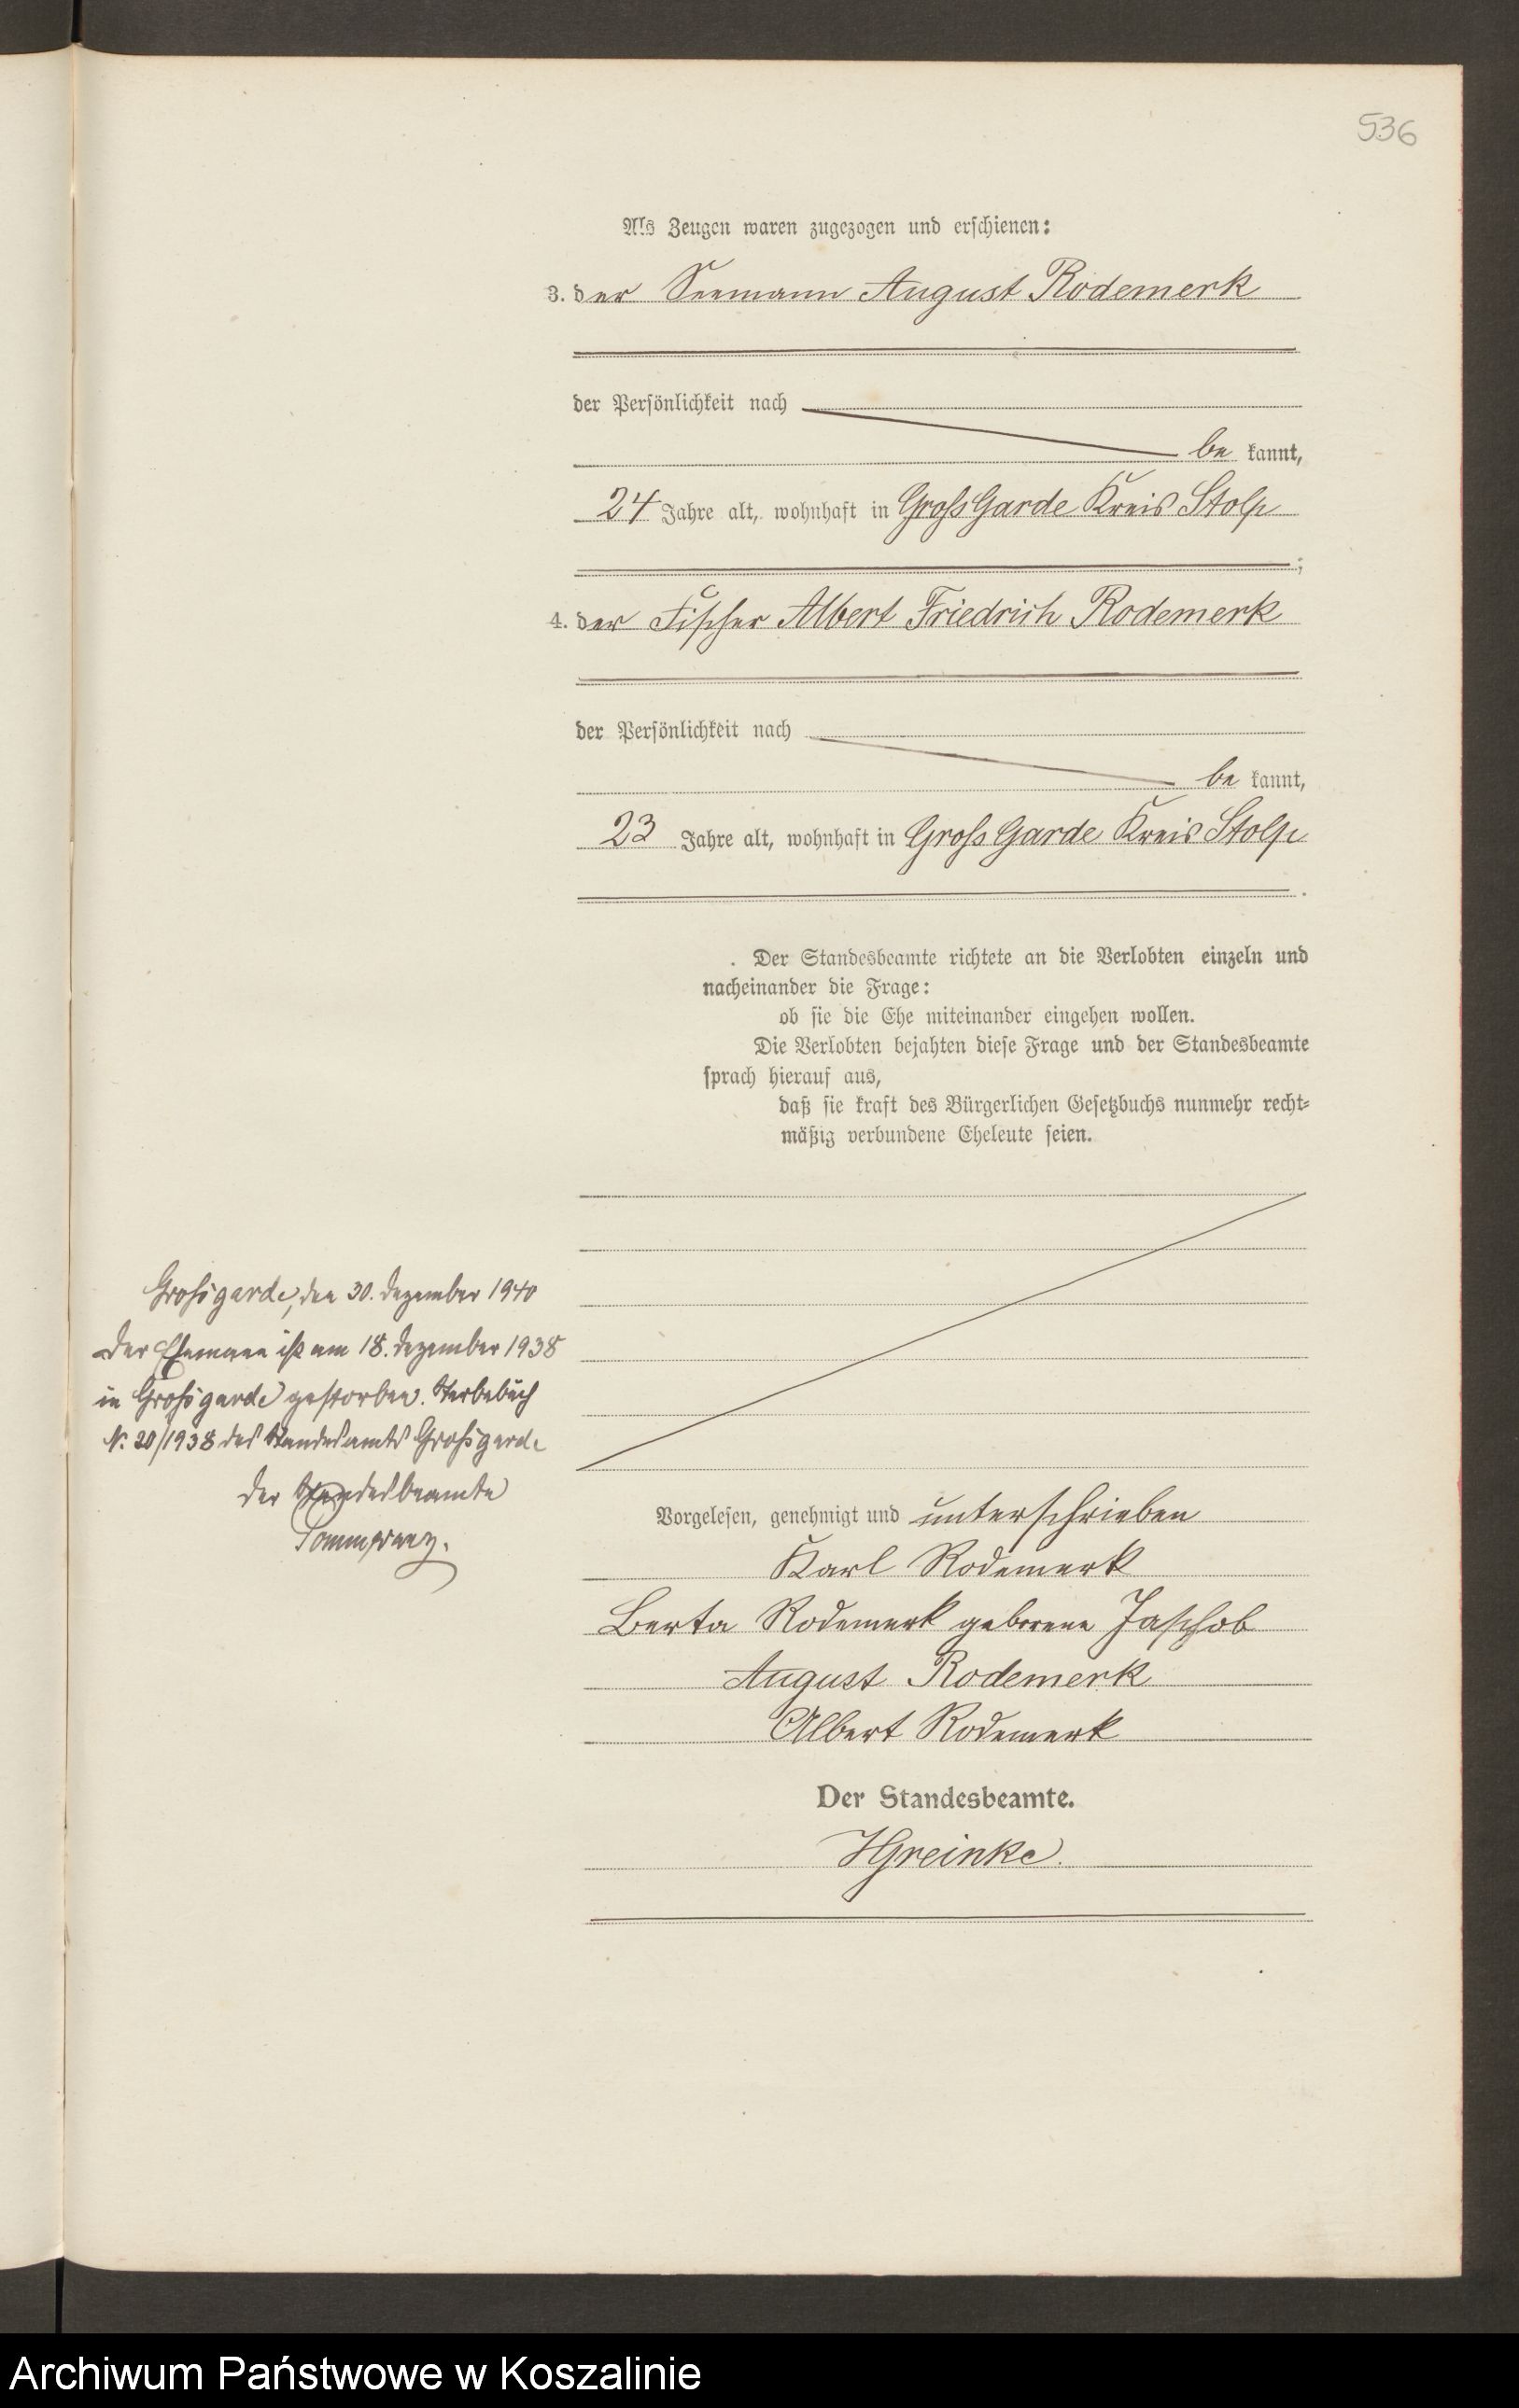 536
Als Zeugen waren zugezogen und erschienen:
3. der Seemann August Rodemerk
der Persönlichkeit nach
be kannt,
24 Jahre alt, wohnhaft in Gross Garde Kreis Stolp
;
4. der Fischer Albert Friedrich Rodemerk
der Persönlichkeit nach
be kannt,
23 Jahre alt, wohnhaft in Gross Garde Kreis Stolp
.
Der Standesbeamte richtete an die Verlobten einzeln und
nacheinander die Frage:
ob sie die Ehe miteinander eingehen wollen.
Die Verlobten bejahten diese Frage und der Standesbeamte
sprach hierauf aus,
daß sie kraft des Bürgerlichen Gesetzbuchs nunmehr recht-
mäßig verbundene Eheleute seien.
Großgarde, den 30. Dezember 1940
Der Ehemann ist am 18. Dezember 1938
in Großgarde gestorben. Sterbebuch
Nr. 20/1938 des Standesamts Großgarde
Der Standesbeamte
Vorgelesen, genehmigt und unterschrieben
Karl Rodemerk
Berta Rodemerk geborene Jaschob
August Rodemerk
Albert Rodemerk
Der Standesbeamte.
HGreinke.
Archiwum Państwowe w Koszalinie